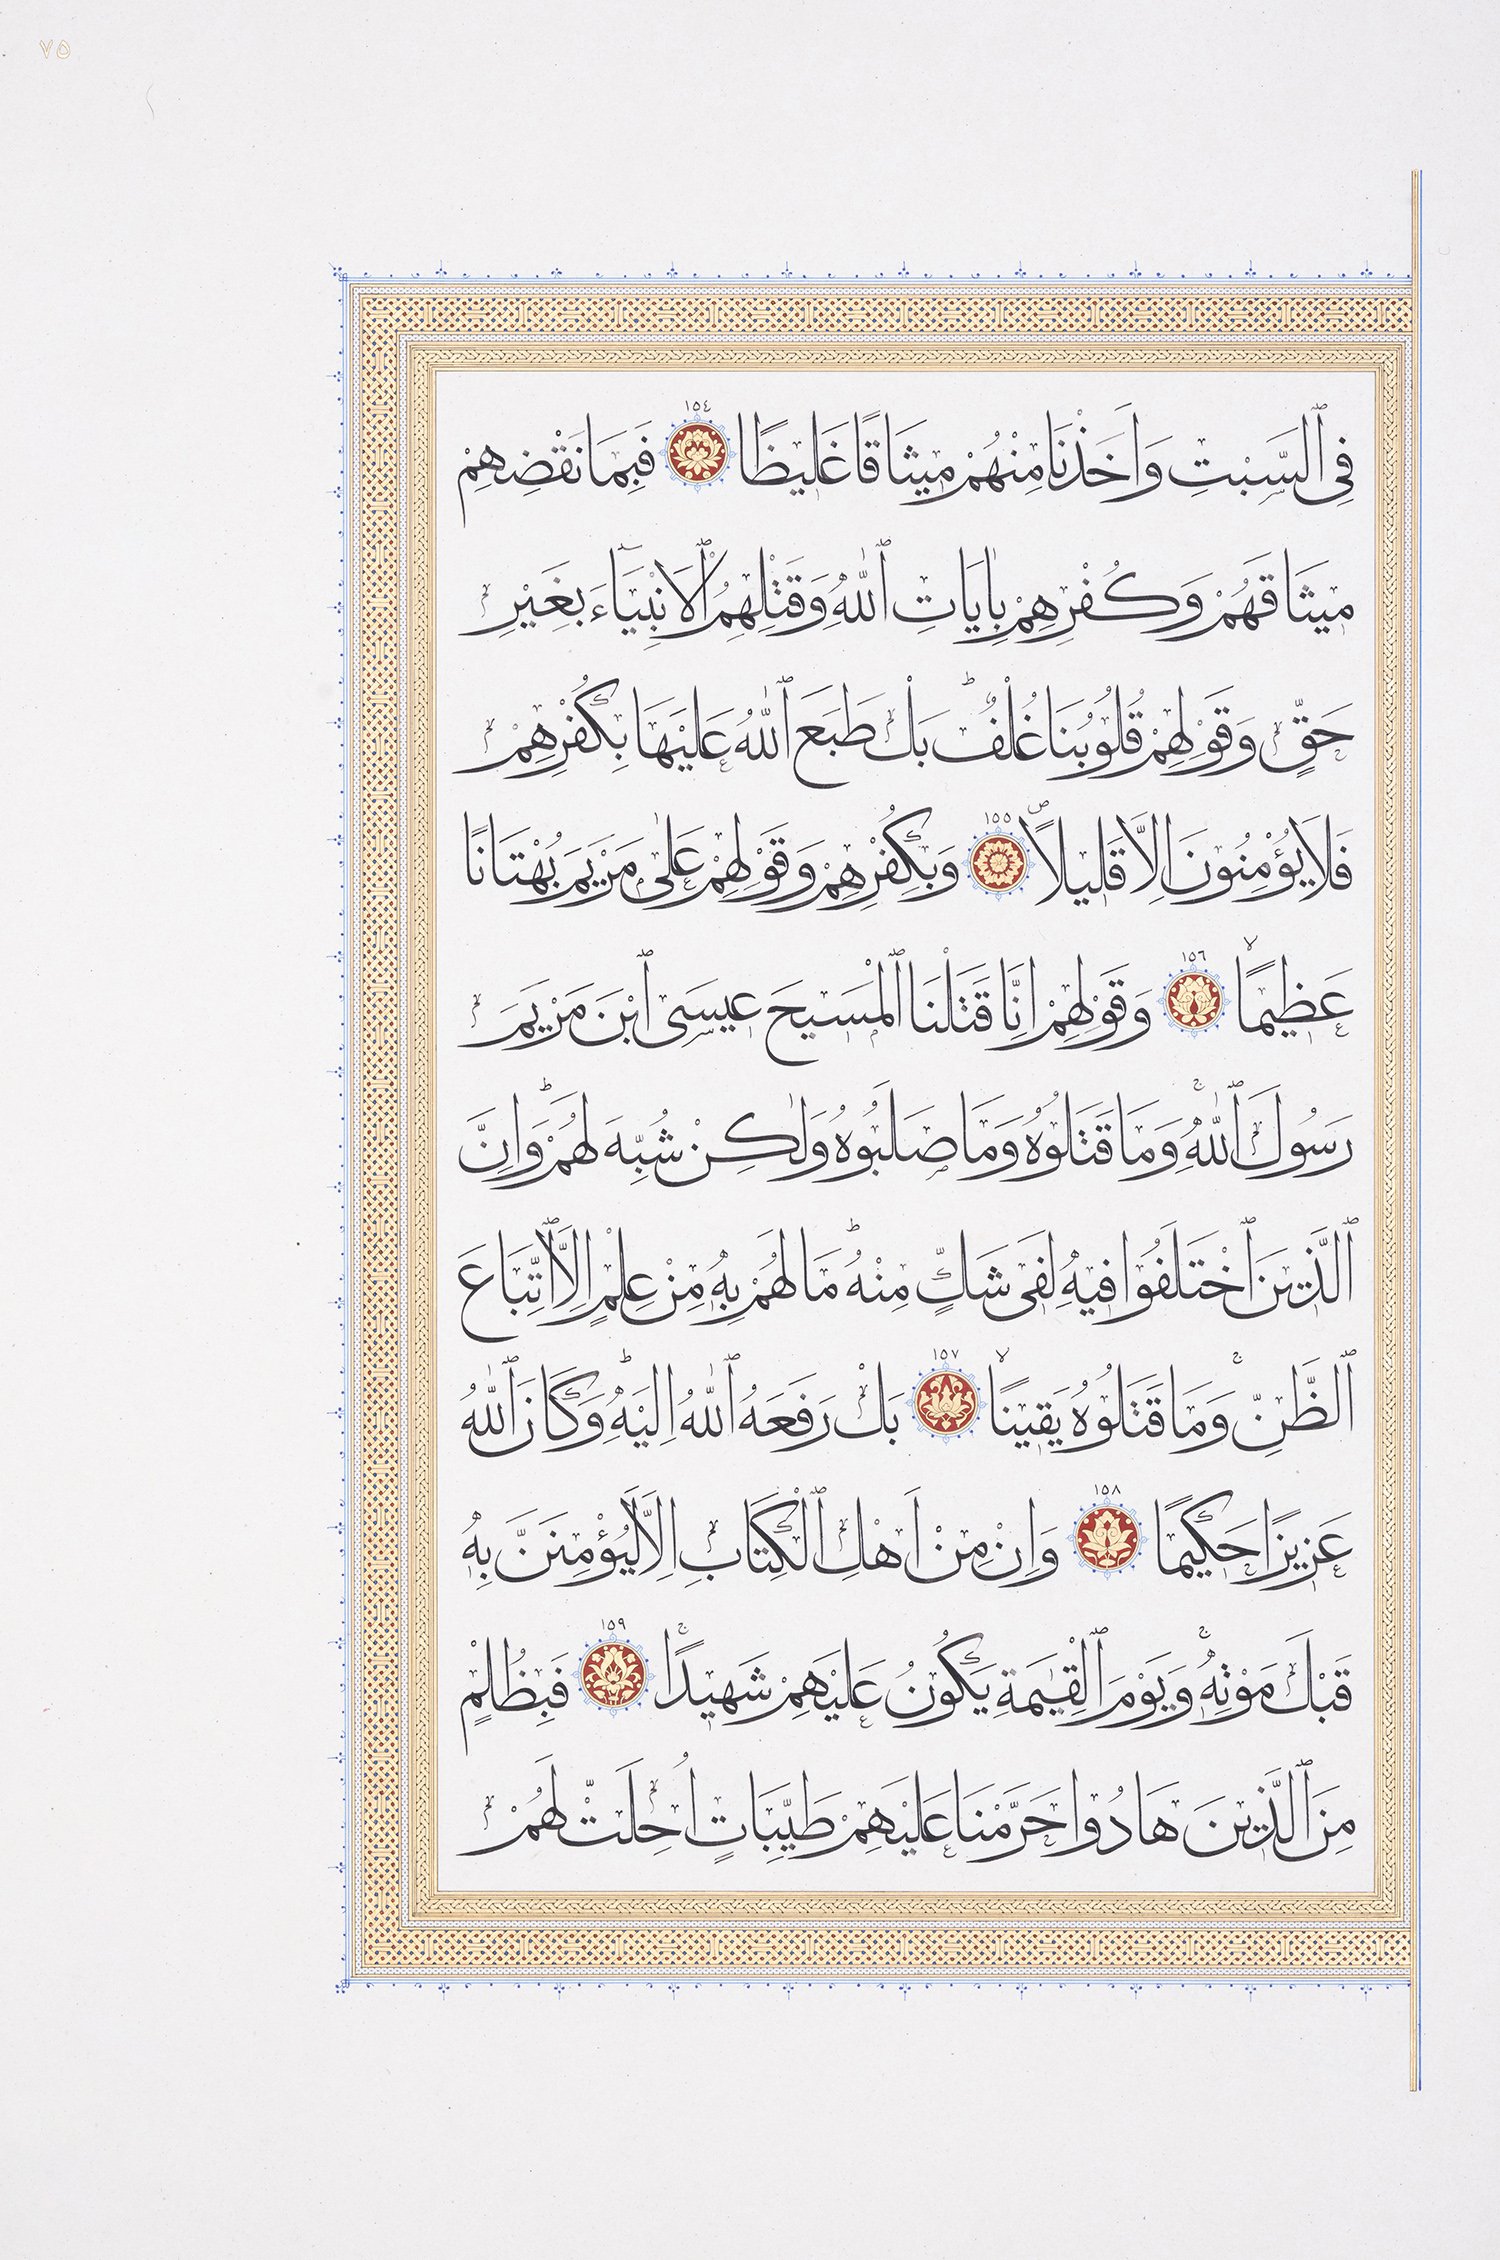 ٧٥
فِى ٱلسَّبْتِ وَاَخَذْنَا مِنْهُمْ مِيثَاقًا غَلِيظًا ١٥٤ فَبِمَا نَقْضِهِمْ
مِيثَاقَهُمْ وَكُفْرِهِمْ بِاٰيَاتِ ٱللّٰهِ وَقَتْلِهِمُ ٱلْاَنْبِيَٓاءَ بِغَيْرِ
حَقٍّ وَقَوْلِهِمْ قُلُوبُنَا غُلْفٌ ؕ بَلْ طَبَعَ ٱللّٰهُ عَلَيْهَا بِكُفْرِهِمْ
فَلَا يُؤْمِنُونَ اِلَّا قَلِيلًا ۖ ١٥٥ وَبِكُفْرِهِمْ وَقَوْلِهِمْ عَلٰى مَرْيَمَ بُهْتَانًا
عَظِيمًا ۙ ١٥٦ وَقَوْلِهِمْ اِنَّا قَتَلْنَا ٱلْمَسِيحَ عِيسَى ٱبْنَ مَرْيَمَ
رَسُولَ ٱللّٰهِ ۚ وَمَا قَتَلُوهُ وَمَا صَلَبُوهُ وَلٰكِنْ شُبِّهَ لَهُمْ ؕ وَاِنَّ
ٱلَّذِينَ ٱخْتَلَفُوا فِيهِ لَفِى شَكٍّ مِنْهُ ؕ مَا لَهُمْ بِهٖ مِنْ عِلْمٍ اِلَّا ٱتِّبَاعَ
ٱلظَّنِّ ۚ وَمَا قَتَلُوهُ يَقِينًا ۙ ١٥٧ بَلْ رَفَعَهُ ٱللّٰهُ اِلَيْهِ ؕ وَكَانَ ٱللّٰهُ
عَزِيزًا حَكِيمًا ١٥٨ وَاِنْ مِنْ اَهْلِ ٱلْكِتَابِ اِلَّا لَيُؤْمِنَنَّ بِهٖ
قَبْلَ مَوْتِهٖ ۚ وَيَوْمَ ٱلْقِيٰمَةِ يَكُونُ عَلَيْهِمْ شَهِيدًا ۚ ١٥٩ فَبِظُلْمٍ
مِنَ ٱلَّذِينَ هَادُوا حَرَّمْنَا عَلَيْهِمْ طَيِّبَاتٍ اُحِلَّتْ لَهُمْ